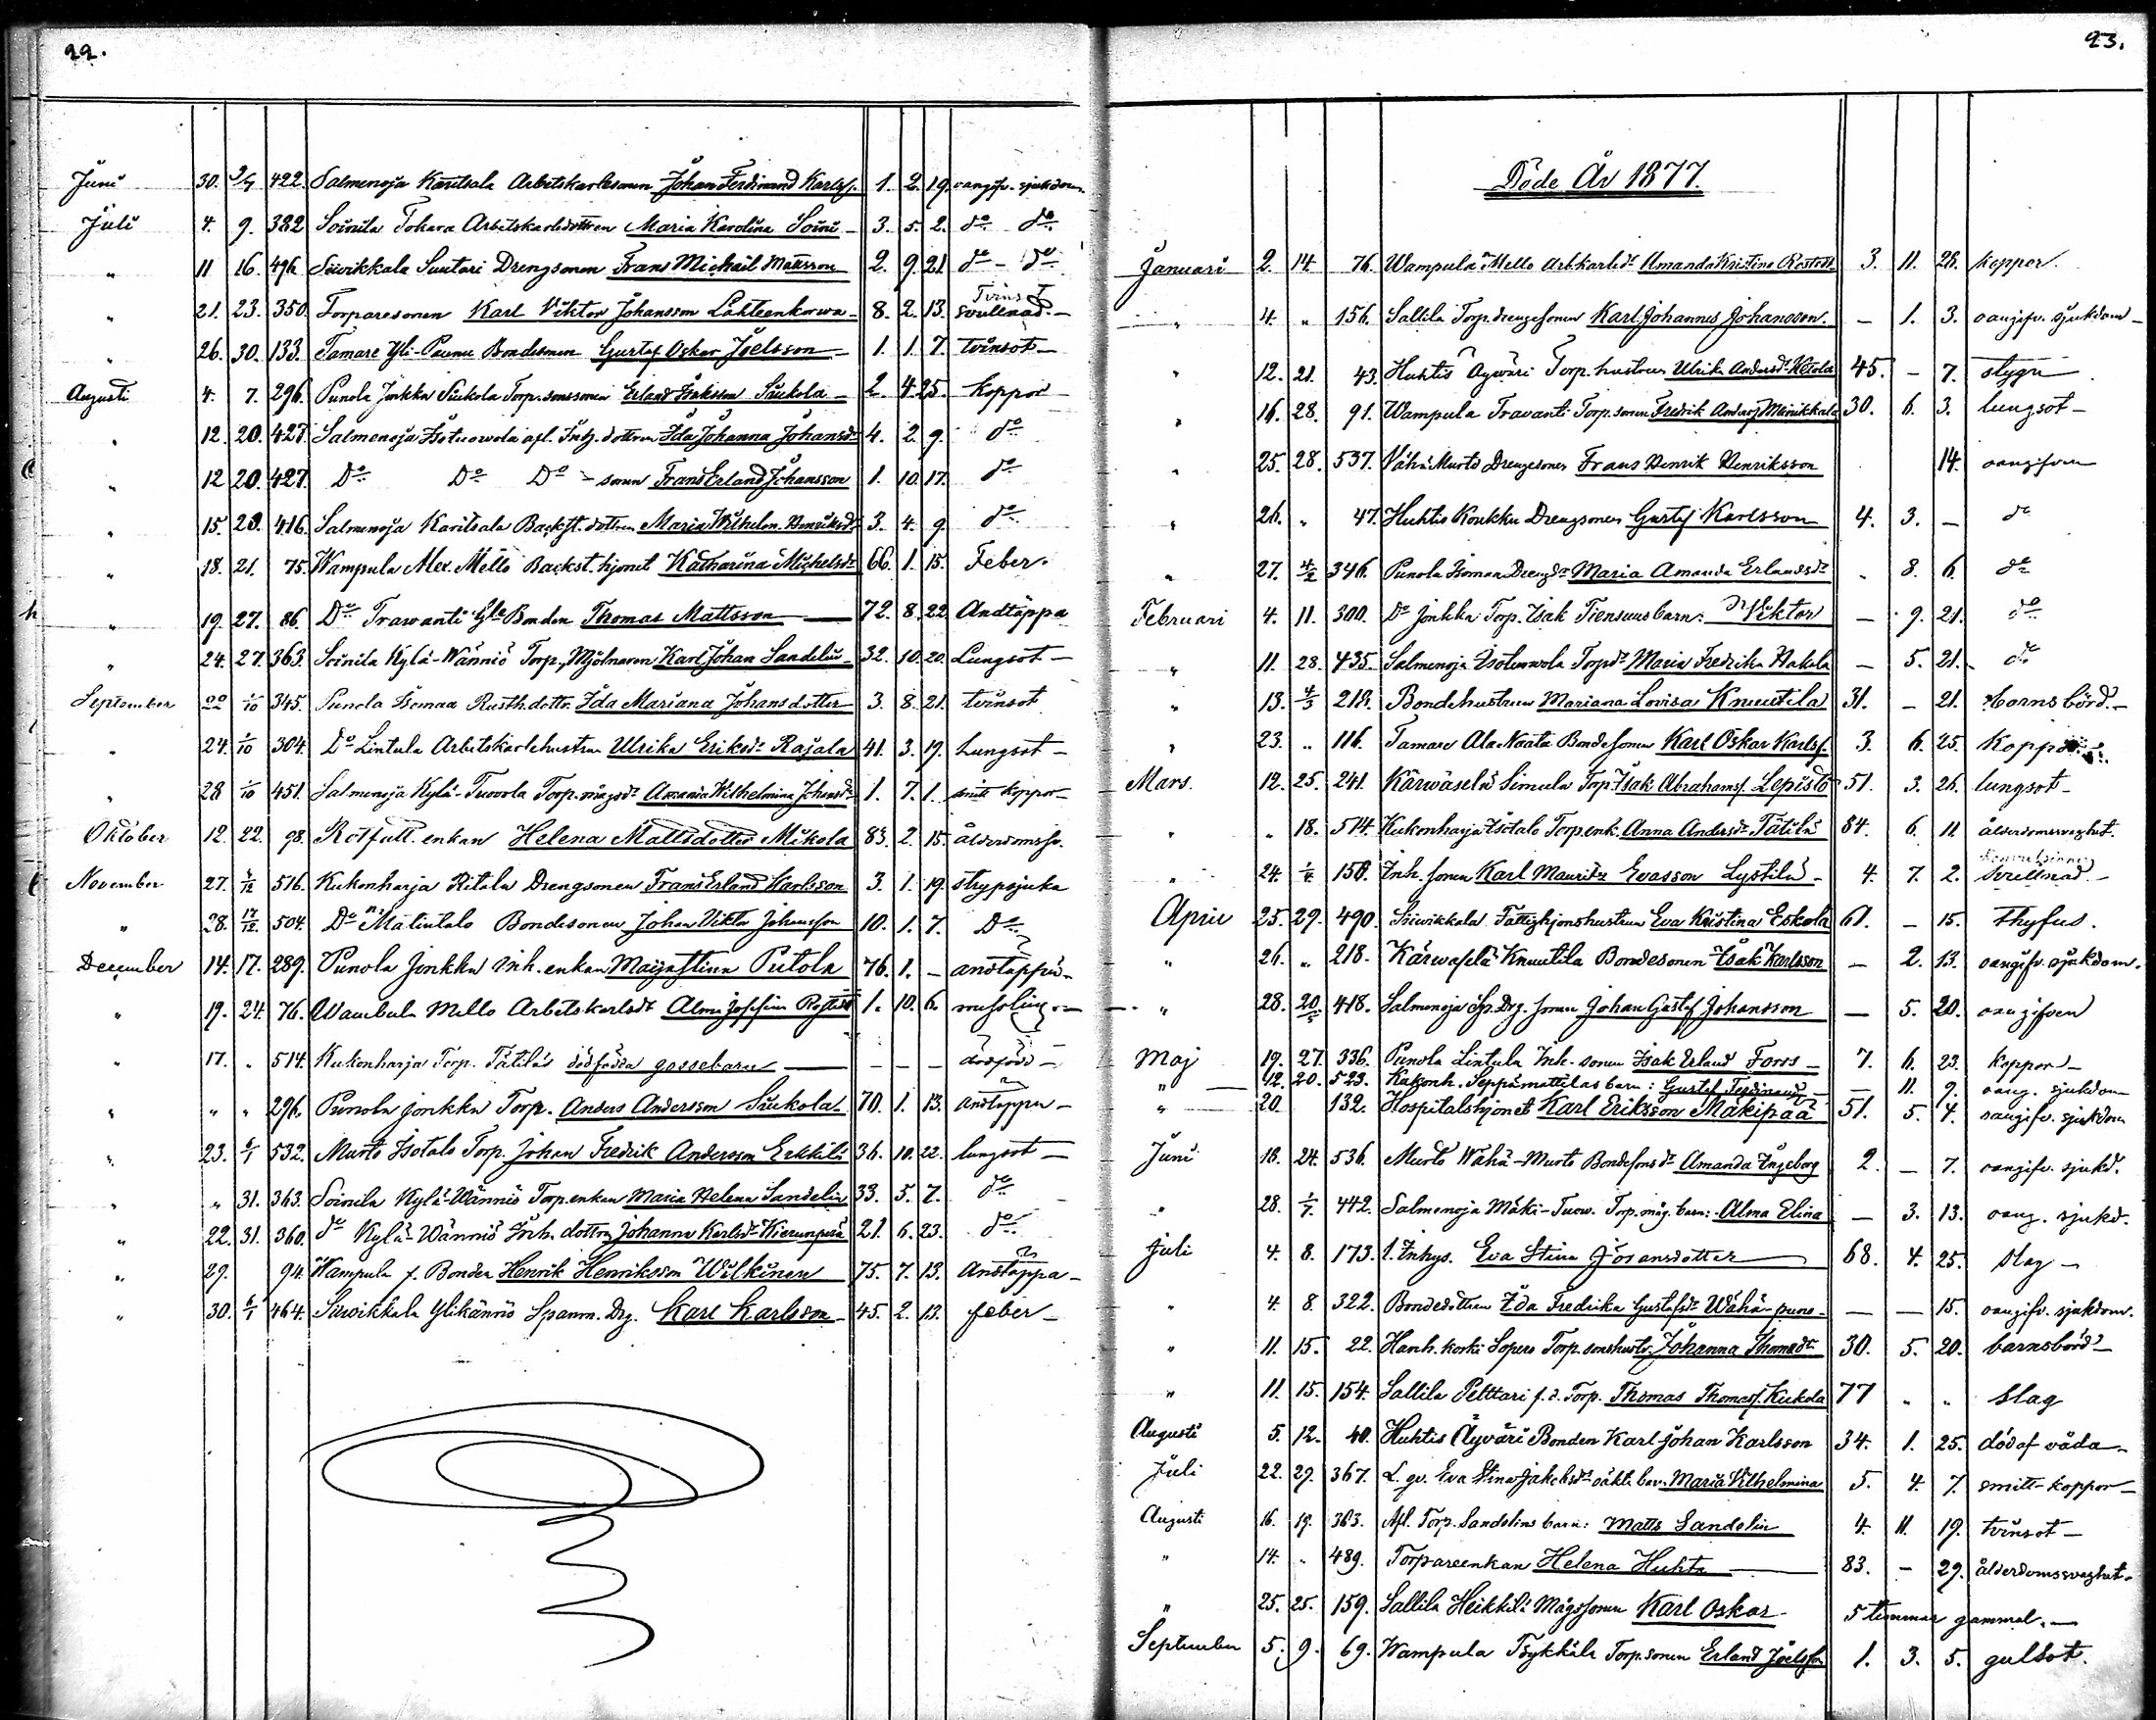 22.
Juni 30. 3/7 422. Salmenoja Karitsala Arbetskarlssonen Johan Ferdinand Karlss. 1. 2. 19. oangifv. sjukdom.
Juli 4. 9. 382 Soinila Tokara Arbetskarlsdottren Maria Karolina Soini 3. 5. 2. do do
" 11 16. 496 Siivikkala Suutari Drengsonen Frans Michaël Mattsson 2. 9. 21 do do
" 21. 23. 350. Torparesonen Karl Viktor Johansson Lähteenkorwa 8. 2. 13. svullnad
" 26. 30. 133. Tamare Yli-Paunu Bondesonen Gustaf Oskar Joelsson 1. 1. 7. tvinsot
Augusti 4. 7. 296. Punola Jonkka Siukola Torp. sonsonen Erland Isaksson Siukola 2. 4. 25. Koppor
" 12. 20. 427. Salmenoja Isotuorwola afl. Inh. dottren Ida Johanna Johansdr 4. 2. 9. do
" 12 20. 427. Do Do Do sonen Frans Erland Johansson 1. 10. 17. do
" 15. 20. 416. Salmenoja Karitsala Backst. dottren Maria Wilhelm. Henriksdr 3. 4. 9. do
" 18. 21. 75. Wampula Mello Backst. hjonet Katharina Michelsdr 66. 1. 15. Feber.
" 19. 27. 86. Do Trawanti Gla Bonden Thomas Mattsson 72. 8. 22. Andtäppa
" 24. 27. 363. Soinila Kylä-Wänniö Torp. Mjölnaren Karl Johan Sandelin 32. 10. 20. Lungsot
September 22 1/10 345. Punola Isomaa Rusth. dottr. Ida Mariana Johansdotter 3. 8. 21. tvinsot
" 24. 1/10 304. Do Lintula Arbetskarlshustrun Ulrika Eriksdr Rajala 41. 3. 19. Lungsot
" 28 1/10 451. Salmenoja Kylä-Tuovola Torp. mågsdr Amanda Wilhelmina Johansdr 1. 7. 1. smitt koppor
Oktober 12. 22. 98. Rotfatt. enkan Helena Mattsdotter Mikola 83. 2. 15. ålderdomssv.
November 27. 3/12 516. Kukonharja Ritala Drengsonen Frans Erland Karlsson 3. 1. 19. strypsjuka
" 28. 17/12 504. Do Matintalo Bondesonen Johan Viktor Johansson 10. 1. 7. Do
December 14. 17. 289. Punola Jonkka Inh. enkan Maija Stina Putola 76. 1. – andtäppa
" 19. 24. 76. Wambula Mello Arbetskarlsdr Alma Josefina 1. 10. 6. messling
" 17. " 514. Kukonharja Torp. Tätiläs dödfödda gossebarn – – – dödfödd
" " " 296. Punola Jonkka Torp. Anders Andersson Siukola 70. 1. 13. andtäppa
" 23. 6/1 532. Murto Isotalo Torp. Johan Fredrik Andersson Erkkilä 36. 10. 22. lungsot
" " 31. 363. Soinila Kylä-Wänniö Torp. enkan Maria Helena Sandelin 33. 5. 7. do
" 22. 31. 360. do Kylä-Wänniö Inh. dottren Johanna Karlsdr 21. 6. 23. do
" 29. 94. Wampula f. Bonden Henrik Henriksson Wilkinen 75. 7. 13. Andtäppa
" 30. 6/1 464. Siivikkala Ylikännö Spanm. Drg. Karl Karlsson 45. 2. 13. feber
23.
Döde År 1877.
Januari 2. 14. 76. Wampula Mello Arbkarlsdr Amanda Kristina 3. 11. 28. koppor.
" 4. " 156. Sallila Torp. drengsonen Karl Johannes Johansson. – 1. 3. oangifv. sjukdom
" 12. 21. 43. Huhtis Äyväri Torp. hustrun Ulrika Andersdr Ketola 45. – 7. stygn
" 16. 28. 91. Wampula Travanti Torp. sonen Fredrik Anderss. Männikkala 30. 6. 3. lungsot
" 25. 28. 537. Vähä Murto Drengsonen Frans Henrik Henriksson 14. oangifven
" 26. " 47. Huhtis Koukku Drengsonen Gustaf Karlsson 4. 3. – do
" 27. 4/2 346. Punola Isomaa Drengdr Maria Amanda Erlandsdr " 8. 6. do
Februari 4. 11. 300. Do Jonkka Torp. Isak Tiensuus barn: Viktor – 9. 21. do
" 11. 28. 435. Salmenoja Isotuorwola Torpdr Maria Fredrika Hakola – 5. 21. do
" 13. 4/3 218. Bondehustrun Mariana Lovisa Knuutila 31. – 21. Barnsbörd.
" 23. " 116. Tamare Ala Naata Bondesonen Karl Oskar Karlss. 3. 6. 25. Koppor
Mars. 12. 25. 241. Kärwäselä Simula Torp. Isak Abrahamss. Lepistö 51. 3. 26. lungsot
" " 18. 514. Kukonharja Isotalo Torp. enk. Anna Andersdr Tätilä 84. 6. 11 ålderdomssvaghet.
" 24. 1/4 158. Inh. sonen Karl Mauritz Evasson Lystilä 4. 7. 2. Svullnad.
April 25. 29. 490. Siivikkala Fattighjonshustrun Eva Kristina Eskola 61. – 15. Thyfus.
" 26. " 218. Kärwäselä Knuutila Bondesonen Isak Karlsson – 2. 13. oangifv. sjukdom.
" 28. 20/5 418. Salmenoja Sp. Drg. sonen Johan Gustaf Johansson – 5. 20. oangifven
Maj 19. 27. 336. Punola Lintula Inh. sonen Isak Erland Forss 7. 6. 23. koppor
" 12. 20. 523. Kukonh. Seppämattilas barn: Gustaf Ferdinand – 11. 9. oang. sjukdom
" 20. 132. Hospitalshjonet Karl Eriksson Mäkipää 51. 5. 4. oangifv. sjukdom
Juni 18. 24. 536. Murto Wähä-Murto Bondesonsdr Amanda Ingeborg 2. – 7. oangifv. sjukd.
" 28. 1/7. 442. Salmenoja Mäki-Tuow. Torp. måg. barn: Alma Elina – 3. 13. oang. sjukd.
Juli 4. 8. 173. l. Inhys. Eva Stina Göransdotter 68. 4. 25. slag
" 4. 8. 322. Bondedottren Ida Fredrika Gustafsdr Wähä-puno – – 15. oangifv. sjukdom.
" 11. 15. 22. Hanh. korki Sopero Torp. sonshustr. Johanna Thomasdr 30. 5. 20. barnsbörd
" 11. 15. 154. Sallila Pelttari f. d. Torp. Thomas Thomass. Kukola 77 " " Slag
Augusti 5. 12. 40. Huhtis Äyväri Bonden Karl Johan Karlsson 34. 1. 25. död af våda
Juli 22. 29. 367. L. qv. Eva Stina Jakobsdr oäkta barn Maria Vilhelmina 5. 4. 7. smitt-koppor
Augusti 16. 19. 363. Afl. Torp. Sandelins barn: Matts Sandelin 4. 11. 19. tvinsot
" 14. " 489. Torpareenkan Helena Huhta 83. – 29. ålderdomssvaghet.
" 25. 25. 159. Sallila Heikkilä Mågssonen Karl Oskar 5 timmar gammal.
September 5. 9. 69. Wampula Tsykkälä Torp. sonen Erland Joelsson 1. 3. 5. gulsot.